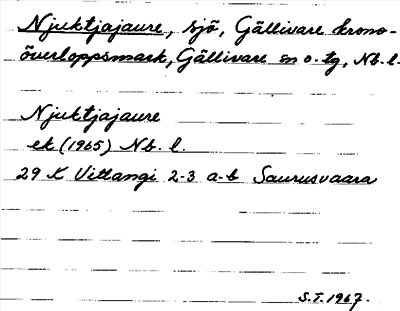 Njuktjajaure, sjö, Gällivare krono-
överloppsmark, Gällivare sn o. tg, Nb. l.
Njuktjajaure
ek (1965) Nb. l.
29 K Vittangi 2-3 a-b Saurusvaara
S.T. 1967.